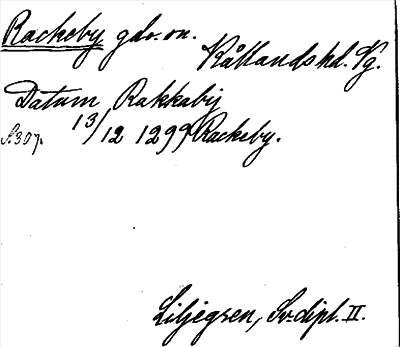 Rackeby gdr. on.
Kållands hd. Vg.
Datum, Rakkaby
S. 307. 13/12 1299 Rackeby.
Liljegren, Sv. dipl. II.